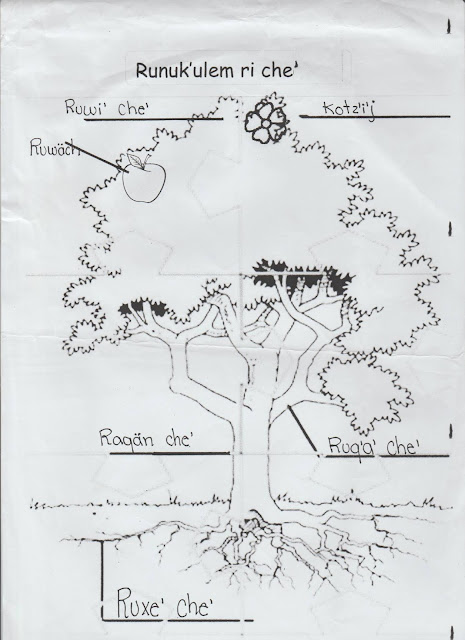 Runuk'ulem ri che'
Ruwi' che'
Kotz'i'j
Ruwäch
Raqän che'
Ruq'a' che'
Ruxe' che'